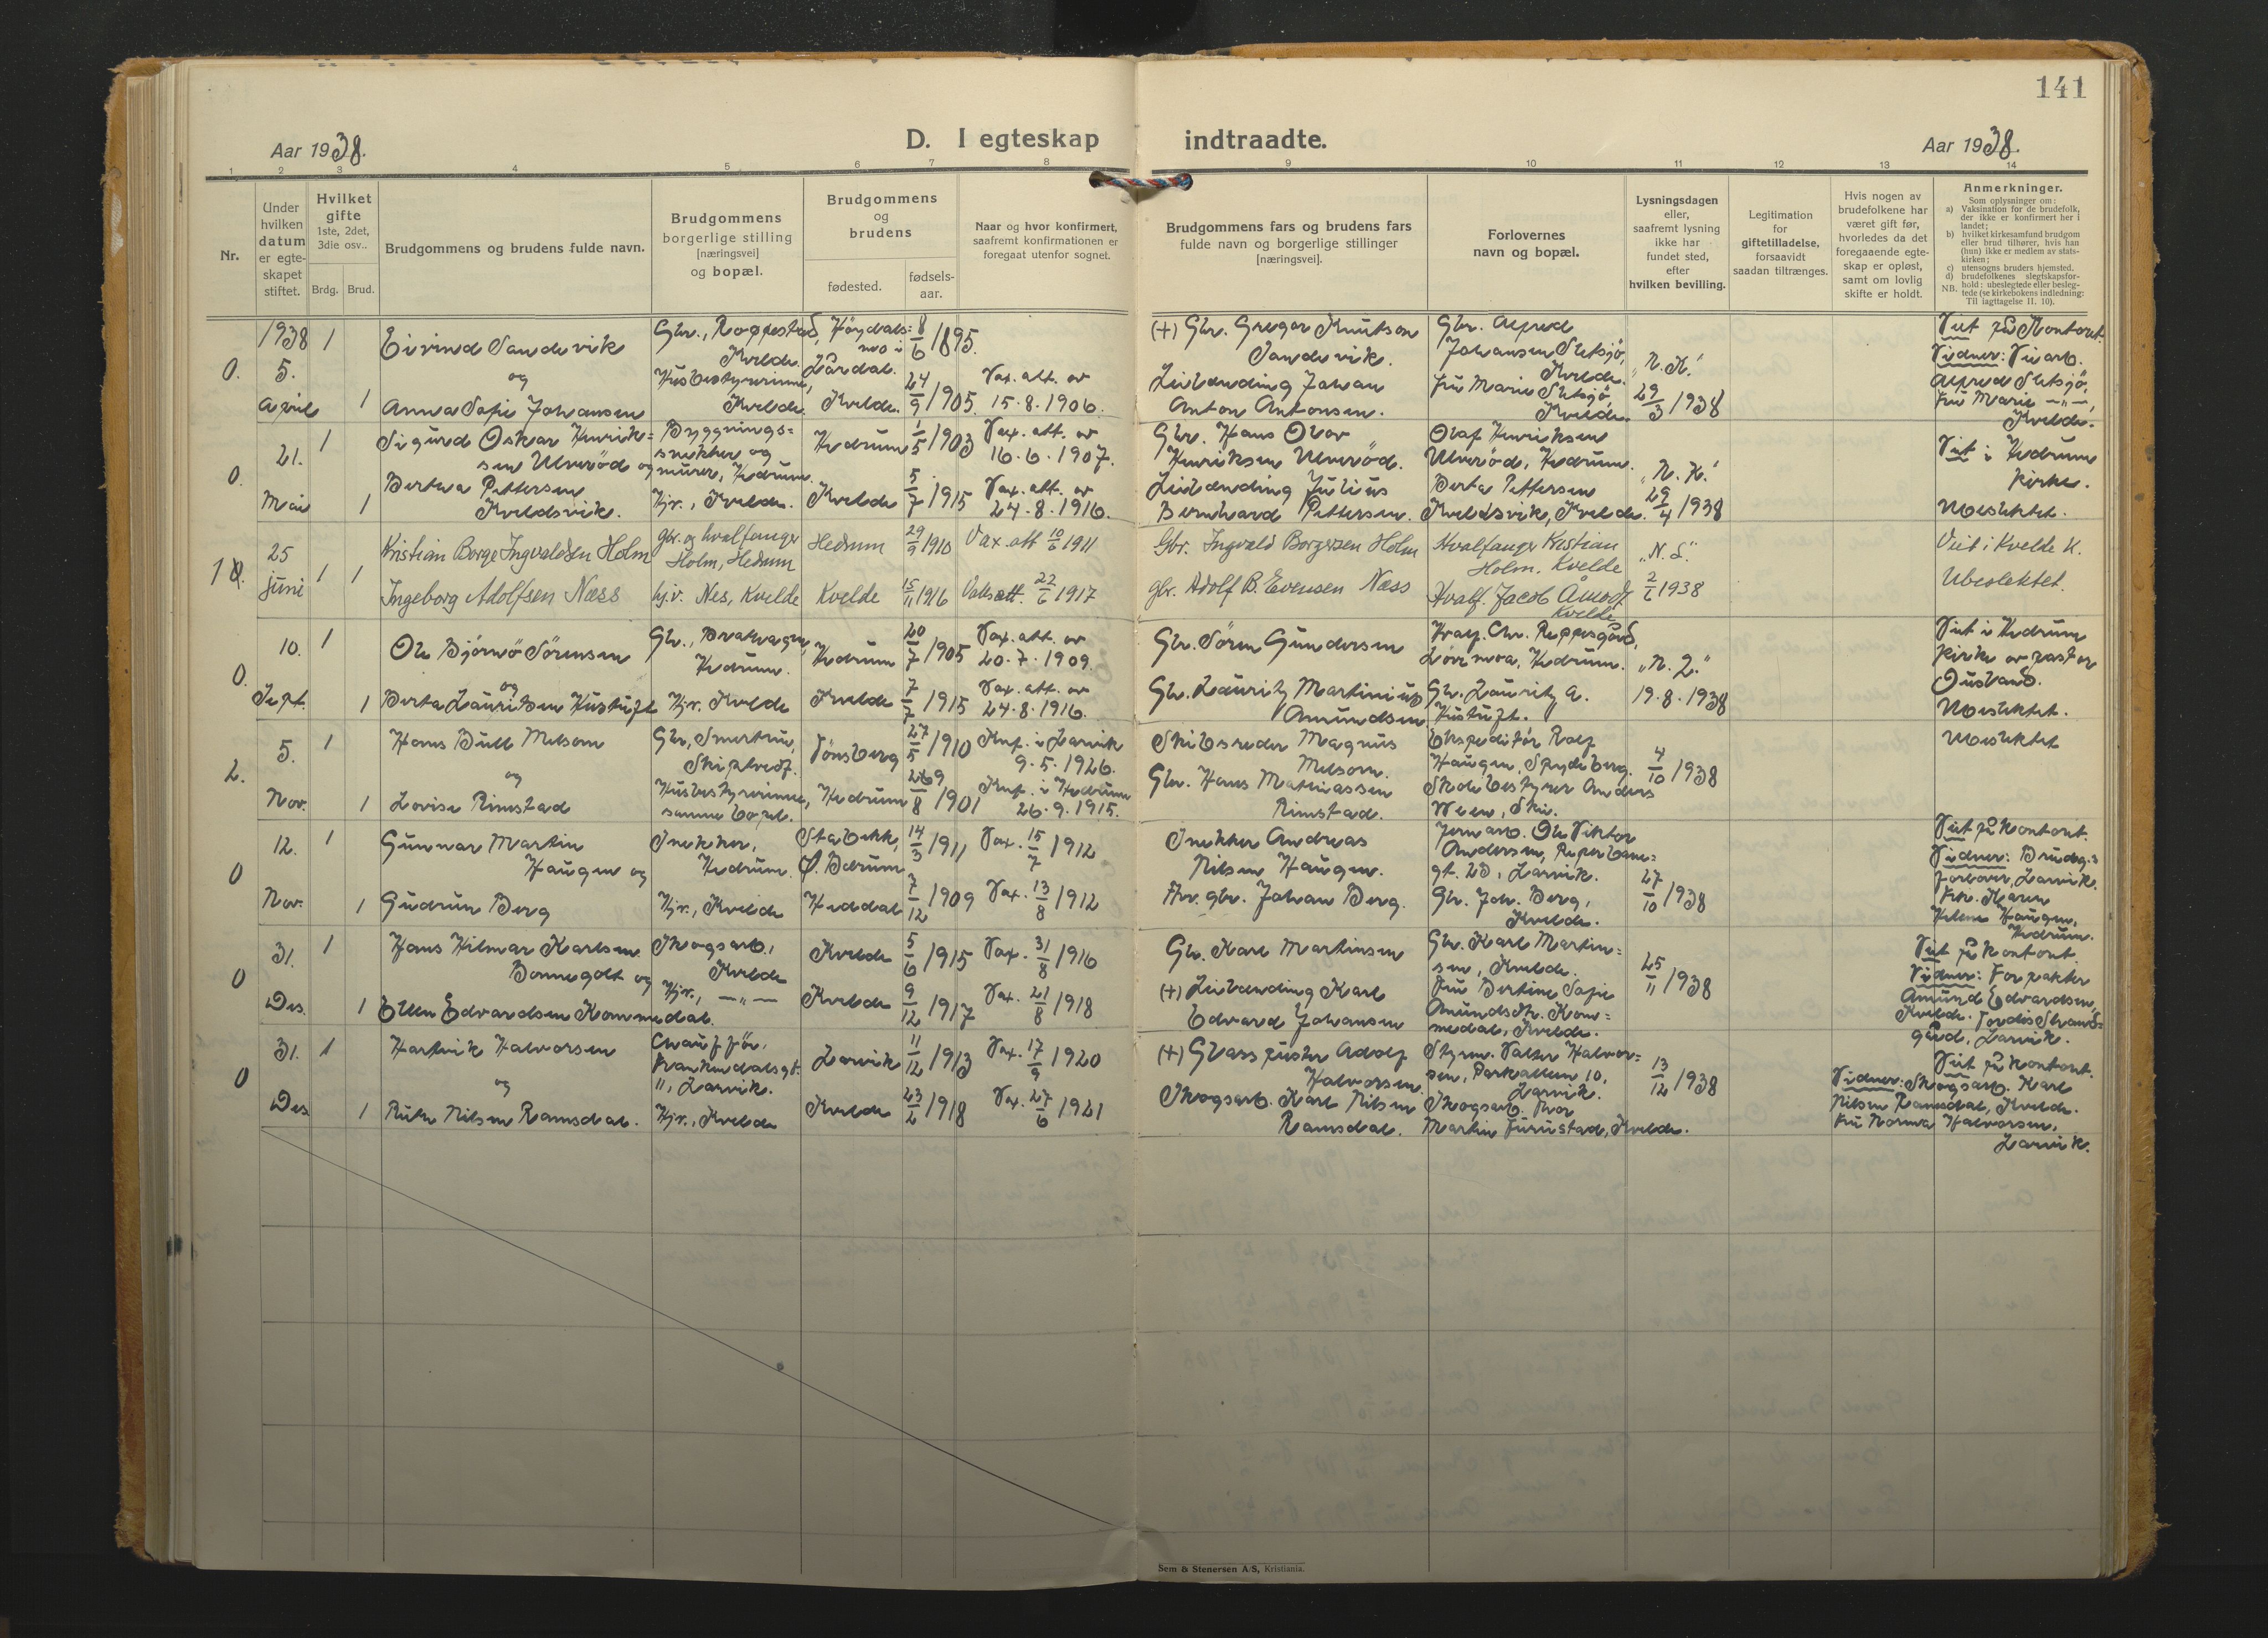 141
Aar 1938.
D. I egteskap indtraadte.
Aar 1938.
1 2 3 4 5 6 7 8 9 10 11 12 13 14
Nr.
Under
hvilken
datum
er egte-
skapet
stiftet.
Hvilket
gifte
1ste, 2det,
3die osv..
Brdg. Brud.
Brudgommens og brudens fulde navn.
Brudgommens
borgerlige stilling
[næringsvei]
og bopæl.
Brudgommens
og
brudens
fødested.
fødsels-
aar.
Naar og hvor konfirmert,
saafremt konfirmationen er
foregaat utenfor sognet.
Brudgommens fars og brudens fars
fulde navn og borgerlige stillinger
[næringsvei].
Forlovernes
navn og bopæl.
Lysningsdagen
eller,
saafremt lysning
ikke har
fundet sted,
efter
hvilken bevilling.
Legitimation
for
giftetilladelse,
forsaavidt
saadan tiltrænges.
Hvis nogen av
brudefolkene har
været gift før,
hvorledes da det
foregaaende egte-
skap er opløst,
samt om lovlig
skifte er holdt.
Anmerkninger.
Som oplysninger om:
a) Vaksination for de brudefolk,
der ikke er konfirmert her i
landet;
b) hvilket kirkesamfund brudgom
eller brud tilhører, hvis han
(hun) ikke er medlem av stats-
kirken;
c) utensogns bruders hjemsted.
d) brudefolkenes slegtskapsfor-
hold: ubeslegtede eller besleg-
NB. tede (se kirkebokens indledning:
Til iagttagelse II. 10).
0.
1938
5.
April
1
Eivind Sandsvik
og
1
Anna Sofie Johansen
Gbr., Roppestad,
Kvelde.
Husbestyrerinne,
Kvelde.
Høydals-
mo i
Lårdal.
Kvelde.
8/6 1895.
24/9 1905.
Vax. att. av
15.8.1906.
(+) Gbr. Gregar Knutson
Sandsvik.
Leilending Johan
Anton Antonsen.
Gbr. Alfred
Johansen Sletsjø,
Kvelde.
Fru Marie Sletsjø,
Kvelde.
"N. K."
29/3 1938
Viet på Kontoret.
Vidner: Veiarb.
Alfred Sletsjø,
Fru Marie —"—,
Kvelde.
0.
21.
Mai
1
Sigurd Oskar Henrik-
sen Ulverød og
1
Bertha Pettersen
Kveldsvik.
Bygnings-
snekker og
murer, Hedrum.
Hjv., Kvelde.
Hedrum
Kvelde
1/5 1903
5/7 1915
Vax. att. av
16.6.1907.
Vax. att. av
24.8.1916.
Gbr. Hans Olav
Henriksen Ulverød.
Leilending Julius
Bernhard Pettersen.
Olaf Henriksen
Ulverød, Hedrum.
Berta Pettersen
Kveldsvik, Kvelde.
"N. K."
29/4 1938
Viet i Hedrum
Kirke.
Ubeslektet.
1
25
juni
1 1
Kristian Borge Ingvaldsen Holm
Ingeborg Adolfsen Næss
gbr. og hvalfanger
Holm, Hedrum
hj.v. Nes, Kvelde
Hedrum
Kvelde
29/9 1910
15/11 1916
Vax. att 10/6 1911
Vaks att. 22/6 1917
Gbr. Ingvald Borgersen Holm
gbr. Adolf B. Evensen Næss
Hvalfanger Kristian
Holm. Kvelde
Hvalf. Jacob Åmodt
Kvelde
"N. L"
2/6 1938
Viet i Kvelde K.
Ubeslektet.
0.
10.
Sept.
1
Ole Bjørnø Sørensen
og
1
Berta Lauritsen Hustuft
Gbr., Bratvagen,
Hedrum.
Hjv. Kvelde
Hedrum
Kvelde
20/7 1905
7/7 1915
Vax. att. av
20.7.1909.
Vax. att. av
24.8.1916.
Gbr. Søren Gundersen
Gbr. Lauritz Martinius
Amundsen
Hvalf. Chr. Reppesgård,
Hedrum.
Gbr. Lauritz A.
Hustuft.
"N. L."
19.8.1938
Viet i Hedrum
Kirke av pastor
Ousland.
Ubeslektet.
2.
5.
Nov.
1
Hans Bull Melsom
og
1
Lovise Rimstad
Gbr., Smertru,
Skiptvedt.
Husbestyrerinne,
samme bopel.
Tønsberg
Hedrum
27/5 1910
8 1901
Knf. i Larvik
9.5.1926.
Knf. i Hedrum
26.9.1915.
Skibsreder Magnus
Melsom.
Gbr. Hans Mathiassen
Rimstad.
Ekspeditør Rolf
Haugen, Spydeberg.
Skolebestyrer Anders
Ween, Skii.
4/10 1938
Ubeslektet
0
12.
Nov.
1
Gunnar Martin
Haugen og
1
Gudrun Berg
Snekker,
Hedrum.
Hjv., Kvelde
Stabekk,
Ø. Bærum
Heddal
14/3 1911
7/12 1909
Vax. 15/7 1912
Vax. 13/8 1912
Snekker Andreas
Nilsen Haugen.
Fhv. gbr. Johan Berg.
Jernarb. Ole Viktor
Andersen, Reperbane-
gt. 20, Larvik.
Gbr. Joh. Berg,
Kvelde.
27/10 1938
Viet på kontoret.
Vidner: Brudg.s
forlover, Larvik.
Frk. Karen
Helene Haugen,
Hedrum.
0
31.
Des.
1
Hans Hilmar Karlsen
Bommegolt og
1
Ellen Edvardsen Kommedal.
Skogsarb.,
Kvelde
Hjv., —"—
Kvelde
Kvelde
5/6 1915
9/12 1917
Vax. 31/8 1916
Vax. 21/8 1918
Gbr. Karl Martinsen
(+) Leilending Karl
Edvard Johansen
Gbr. Karl Martin-
sen, Kvelde.
Fru Bertine Sofie
Amundsdtr. Kom-
medal, Kvelde.
25/11 1938
Viet på kontoret.
Vidner: Forpakter
Amund Edvardsen,
Kvelde. Tordis Strand-
gård, Larvik.
0
31.
Des
1
Hartvik Halvorsen
og
1
Ruth Nilsen Ramsdal.
Chauffør,
Frankendalsgt.
11, Larvik.
Hjv., Kvelde
Larvik
Kvelde
11/12 1913
23/2 1918
Vax. 17/9 1920
Vax. 27/6 1921
(+) Glasspuster Adolf
Halvorsen.
Skogsarb. Karl Nilsen
Ramsdal.
Styrm. Valter Halvor-
sen, Parkalleen 10,
Larvik.
Skogsarb. Thor
Martin Furustad, Kvelde.
13/12 1938
Viet på kontoret.
Vidner: Skogsarb. Karl
Nilsen Ramsdal, Kvelde.
Fru Norma Halvorsen,
Larvik.
Sem & Stenersen A/S, Kristiania.